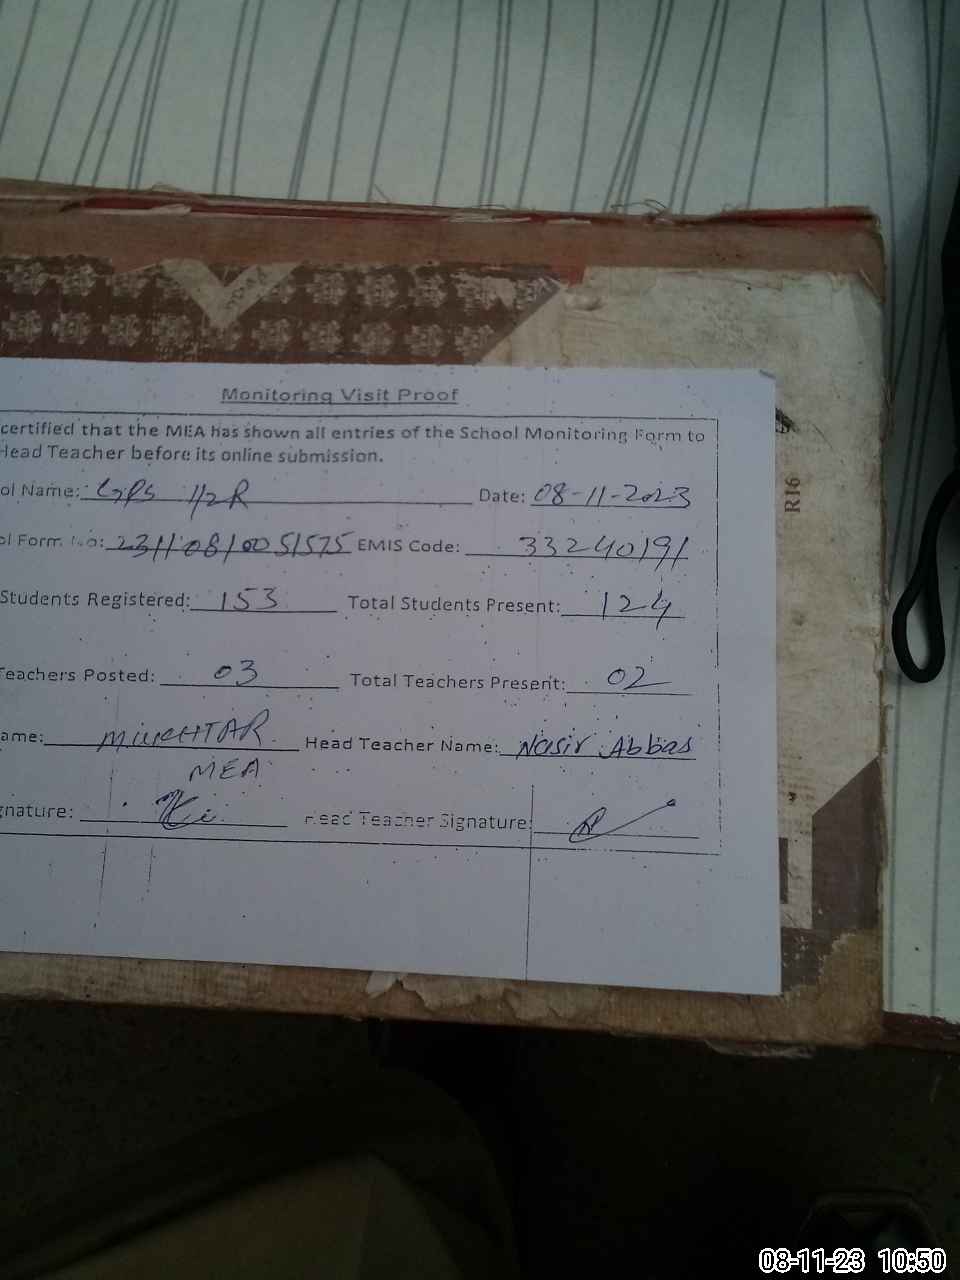 Monitoring Visit Proof
certified that the MEA has shown all entries of the School Monitoring Form to
Head Teacher before its online submission.
ol Name: GPS 1/2R Date: 08-11-2023
ol Form No: 2311081005 1575 EMIS Code: 33240191
Students Registered: 153 Total Students Present: 124
Teachers Posted: 03 Total Teachers Present: 02
ame: MUKHTAR Head Teacher Name: Nasir Abbas
MEA
gnature: Head Teacher Signature:
R16
08-11-23 10:50